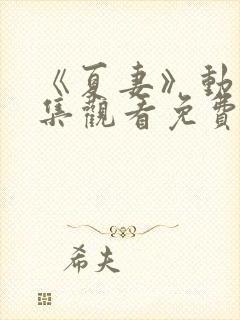 《夏妻》動
集觀看免費
希夫